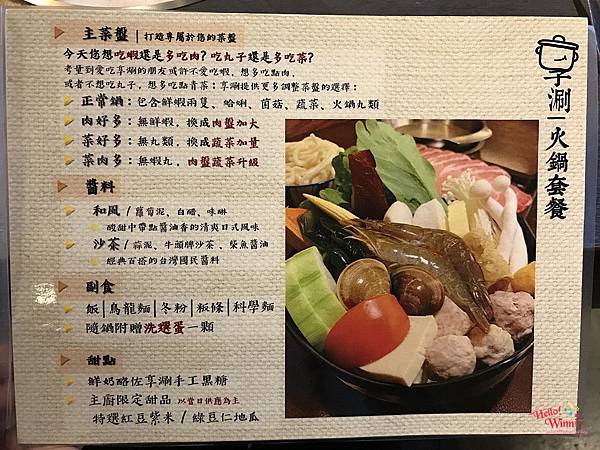 主菜盤｜打造專屬於您的菜盤
今天您想吃蝦還是多吃肉? 吃丸子還是多吃菜?
考量到愛吃享涮的朋友或許不愛吃蝦, 想多吃點肉,
或者不想吃丸子, 想多吃點青菜; 享涮提供更多調整菜盤的選擇:
正常鍋: 包含鮮蝦兩隻、蛤蜊、菌菇、蔬菜、火鍋丸類
肉好多: 無鮮蝦, 換成肉盤加大
菜好多: 無丸類, 換成蔬菜加量
菜肉多: 無蝦丸, 肉盤蔬菜升級
醬料
和風 / 蘿蔔泥、白醋、味琳
酸甜中帶點醬油香的清爽日式風味
沙茶 / 蒜泥、牛頭牌沙茶、柴魚醬油
經典百搭的台灣國民醬料
副食
飯│烏龍麵│冬粉│粄條│科學麵
隨鍋附贈洗選蛋一顆
甜點
鮮奶酪佐享涮手工黑糖
主廚限定甜品 以當日供應為主
特選紅豆紫米 / 綠豆仁地瓜
享涮│火鍋套餐
Hello!
Winni